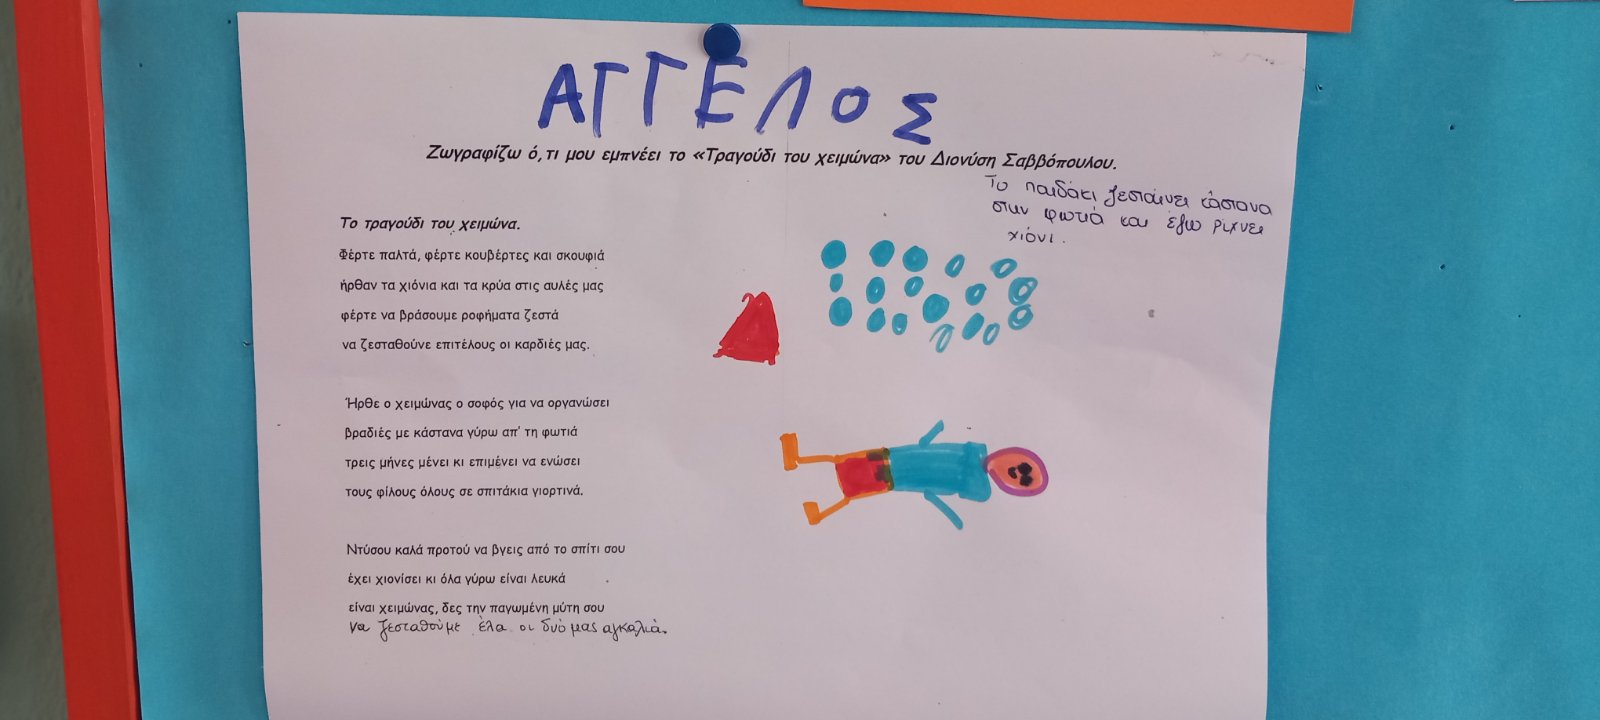 ΑΓΓΕΛΟΣ
Ζωγραφίζω ό,τι μου εμπνέει το «Τραγούδι του χειμώνα» του Διονύση Σαββόπουλου.
Το παιδάκι ζεσταίνει κάστανα
στην φωτιά και έξω ρίχνει
χιόνι.
Το τραγούδι του χειμώνα.
Φέρτε παλτά, φέρτε κουβέρτες και σκουφιά
ήρθαν τα χιόνια και τα κρύα στις αυλές μας
φέρτε να βράσουμε ροφήματα ζεστά
να ζεσταθούνε επιτέλους οι καρδιές μας.
Ήρθε ο χειμώνας ο σοφός για να οργανώσει
βραδιές με κάστανα γύρω απ' τη φωτιά
τρεις μήνες μένει κι επιμένει να ενώσει
τους φίλους όλους σε σπιτάκια γιορτινά.
Ντύσου καλά προτού να βγεις από το σπίτι σου
έχει χιονίσει κι όλα γύρω είναι λευκά
είναι χειμώνας, δες την παγωμένη μύτη σου
να ζεσταθούμε έλα οι δυό μας αγκαλιά.